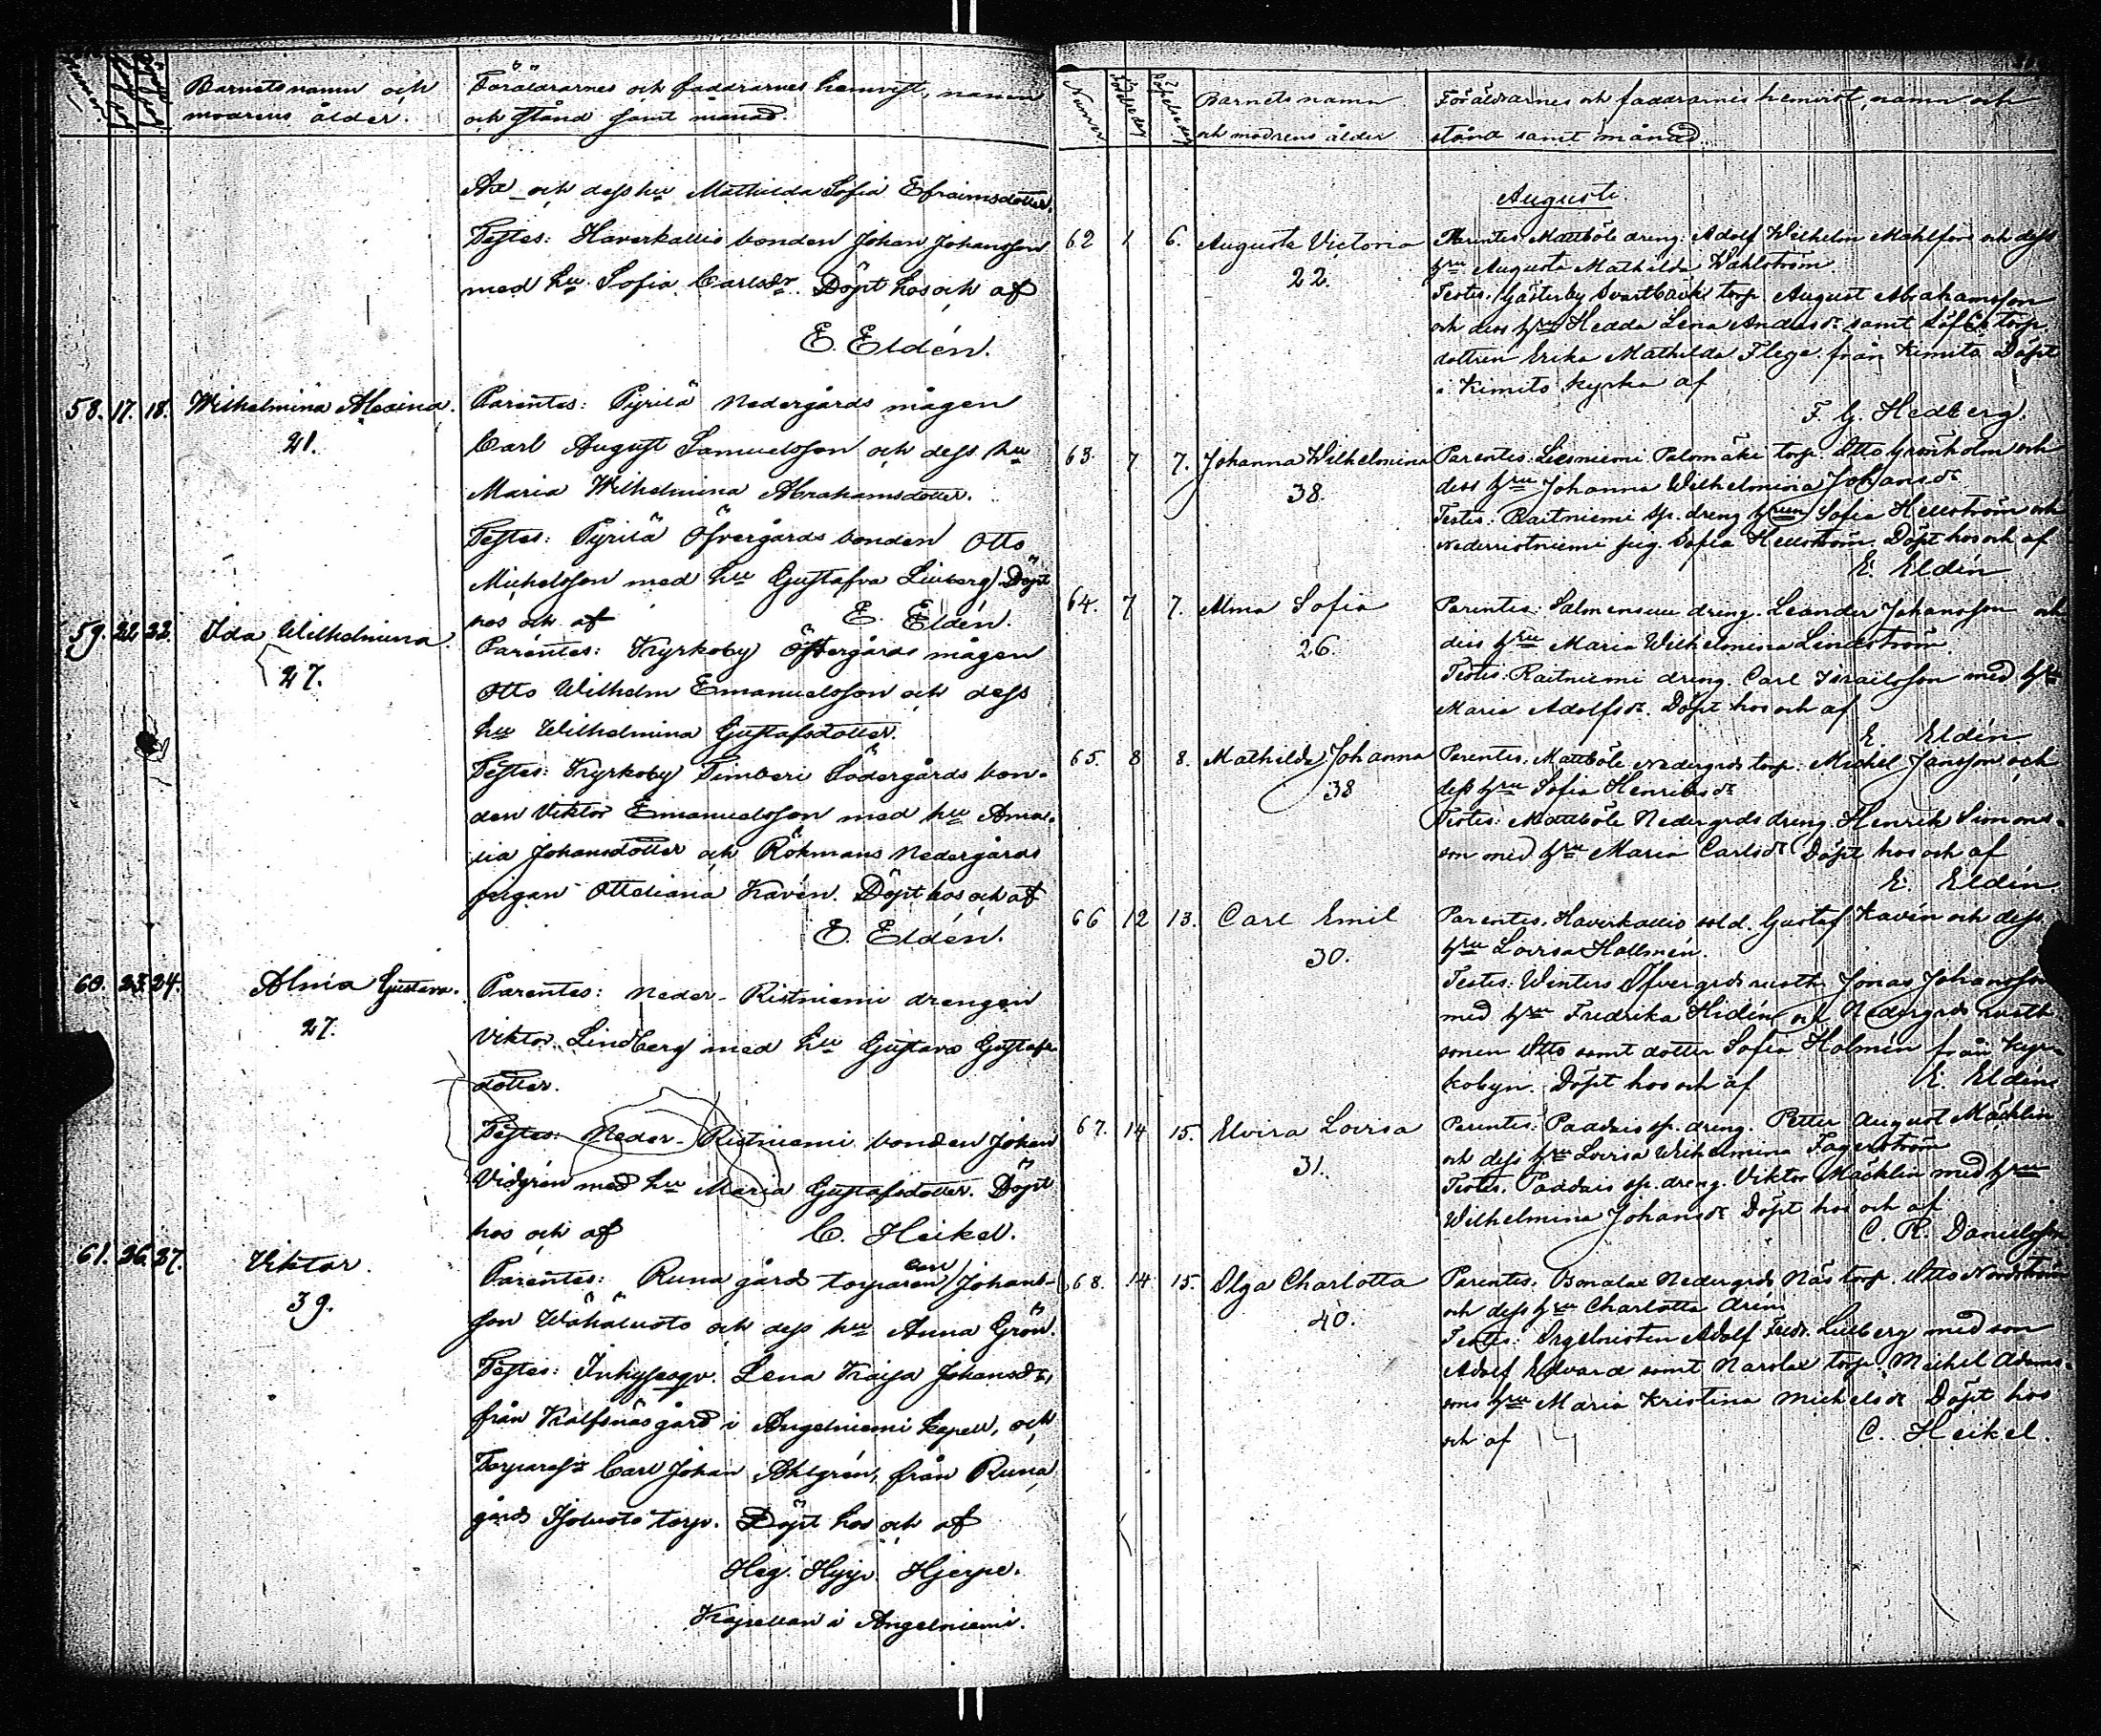 Barnets namn och
modrens ålder.
Föräldrarnes och faddrarnes hemvist, namn
och stånd samt månad.
och dess hu Mathilda Sofia Efraimsdotter.
Testes: Haverkallio bonden Johan Johansson
med hu Sofia Carlsdr. Döpt hos och af
E. Eldén.
58. 17. 18. Wilhelmina Alexina.
21.
Parentes: Pyrilä Nedergårds mågen
Carl August Samuelsson och dess hu
Maria Wilhelmina Abrahamsdotter.
Testes: Pyrilä Öfvergårds bonden Otto
Michelsson med hu Gustafva Liuberg Döpt
hos och af E. Eldén.
59. 22. 23. Ida Wilhelmina.
27.
Parentes: Kyrkoby Öfvergårds mågen
Otto Wilhelm Emanuelsson och dess
hu Wilhelmina Gustafsdotter.
Testes: Kyrkoby Timberi Södergårds bon-
den Viktor Emanuelsson med hu Ama-
lia Johansdotter och Rökmans Nedergårds
pigan Ottiliana Kavén. Döpt hos och af
E. Eldén.
60. 23. 24. Alma Gustava.
27.
Parentes: Neder-Ristniemi drengen
Viktor Lindberg med hu Gustava Gustafs-
dotter.
Testes: Neder-Ristniemi bonden Johan
Vidgrén med hu Maria Gustafsdotter. Döpt
hos och af C. Heikel.
61. 26. 27. Viktor.
39.
Parentes: Runagård torparen Johans-
son Wähäluoto och dess hu Anna Grön.
Testes: Inhysesqv. Lena Kaisa Johansdr,
från Kalfsnäs gård i Angelniemi kapell, och
Carl Johan Ahlgrén, från Runa
gårds torp. Döpt hos och af
Hjerpe.
Kapellan i Angelniemi.
Nummer
Födelsedag
Döpelsedag
Barnets namn
och modrens ålder
Föräldrarnes och faddrarnes hemvist, namn och
stånd samt månad.
Augusti.
62 1 6. Augusta Victoria
22.
Parentes: Mattböle dreng. Adolf Wilhelm Mahlfors och dess
hru Augusta Mathilda Wahlström.
Testes: Gästerby Svartbäck torp. August Abrahamsson
och dess hru Hedda Lena Andersdr samt torp.
dottren Erika Mathilda Flege från Kimito Döpt
i Kimito kyrka af
F. G. Hedberg.
63. 7 7. Johanna Wilhelmina
38.
Parentes: Liesniemi Palomäki torp. Otto Grönholm och
dess hru Johanna Wilhelmina Johansdr
Testes: Raitniemi sp. dreng hrun Sofia Hellström och
Nederristniemi pig. Sofia Hellström. Döpt hos och af
E. Eldén
64. 7 7. Alma Sofia
26.
Parentes: Salmensuu dreng. Leander Johansson och
dess hru Maria Wilhelmina Lindström.
Testes: Raitniemi dreng. Carl Israelsson med hru
Maria Adolfsdr. Döpt hos och af
E. Eldén.
65. 8 8. Mathilda Johanna
38
Parentes: Mattböle Nedergrds torp. Michel Jansson och
dess hru Sofia Henriksdr
Testes: Mattböle Nedergrds dreng. Henrik Simons-
son med hru Maria Carlsdr Döpt hos och af
E. Eldén
66 12 13. Carl Emil
30.
Parentes: Haverkallio sold. Gustaf Kavén och dess
hru Lovisa Hallmén.
Testes: Winters Öfvergrds rusth. Jonas Johansson
med hru Fredrika Hidén och Nedergrds rusth.
sonen Otto samt dotter Sofia Holmén från Kyr-
kobyn. Döpt hos och af E. Eldén
67. 14 15. Elvira Lovisa
31.
Parentes: Paddais sp. dreng. Petter August Mäcklin
och dess hru Lovisa Wilhelmina Fagerström
Testes. Paddais sp. dreng. Viktor Mäcklin med hru
Wilhelmina Johansdr Döpt hos och af
C. R. Danielsson
68. 14 15. Olga Charlotta
40.
Parentes: Bonalax Nedergrds Näs torp. Otto Nordström
och dess hru Charlotta Arén
Testes: Orgelnisten Adolf Fredr. Lilberg med son
Adolf Edvard samt Narolax torp. Michel Adams-
sons hru Maria Kristina Michelsdr Döpt hos
och af C. Heikel.